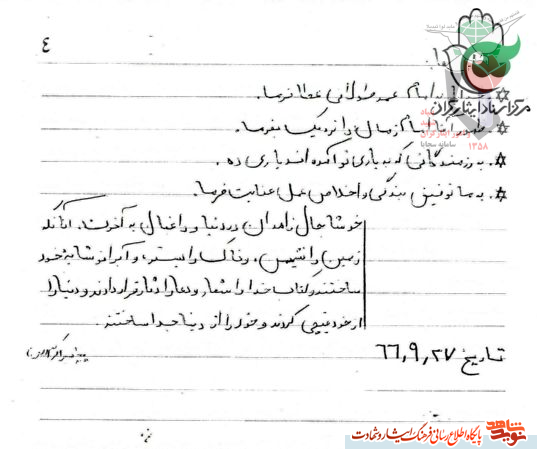 ٤
خدایا:
✡ خدایا به امام عمر طولانی عطا فرما.
✡ ظهور امام زمان را نزدیک بفرما.
✡ به رزمندگانی که به یاری تو آمده اند یاری ده.
✡ به ما توفیق بندگی و اخلاص عمل عنایت فرما.
خوشا بحال زاهدان در دنیا و راغبان به آخرت. آنانکه
زمین را نشیمن، و خاک را بستر، و آب را نوشابه خود
ساختند و کتاب خدا را شعار و دعا را دثار قرار دادند و دنیا را
از خود قیچی کردند و خود را از دنیا جدا ساختند.
تاریخ ٦٦,٩,٢٧
مرکز اسناد ایثارگران
۱۳۵۸
سامانه سجایا
نوید شاهد
پایگاه اطلاع رسانی فرهنگ ایثار و شهادت